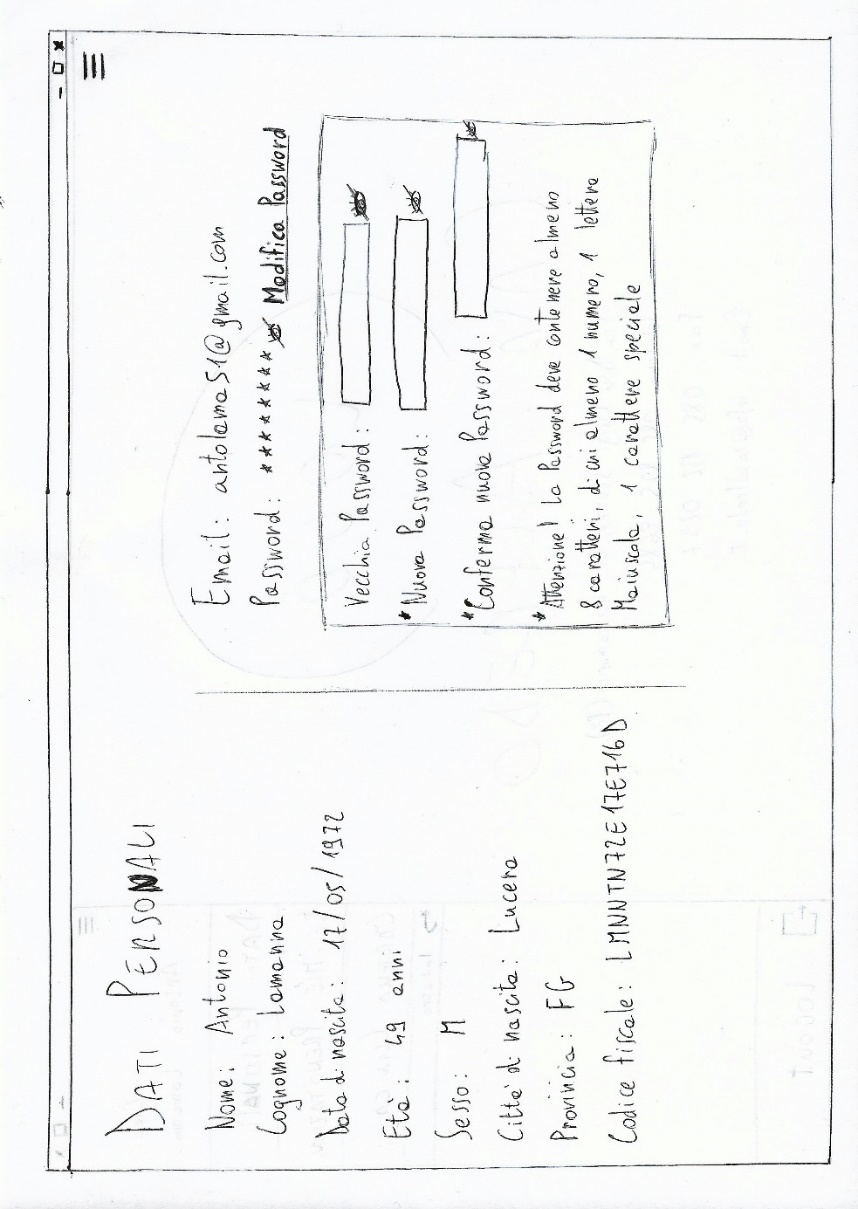 DATI PERSONALI
Nome: Antonio
Cognome: Lamanna
Data di nascita: 17/05/1972
Età: 49 anni
Sesso: M
Città di nascita: Lucera
Provincia: FG
Codice fiscale: LMNNTN72E17E716D
Email: antolama51@gmail.com
Password: ******** Modifica Password
Vecchia Password:
*Nuova Password:
*Conferma nuova Password:
*Attenzione! La Password deve contenere almeno
8 caratteri, di cui almeno 1 numero, 1 lettera
Maiuscola, 1 carattere speciale